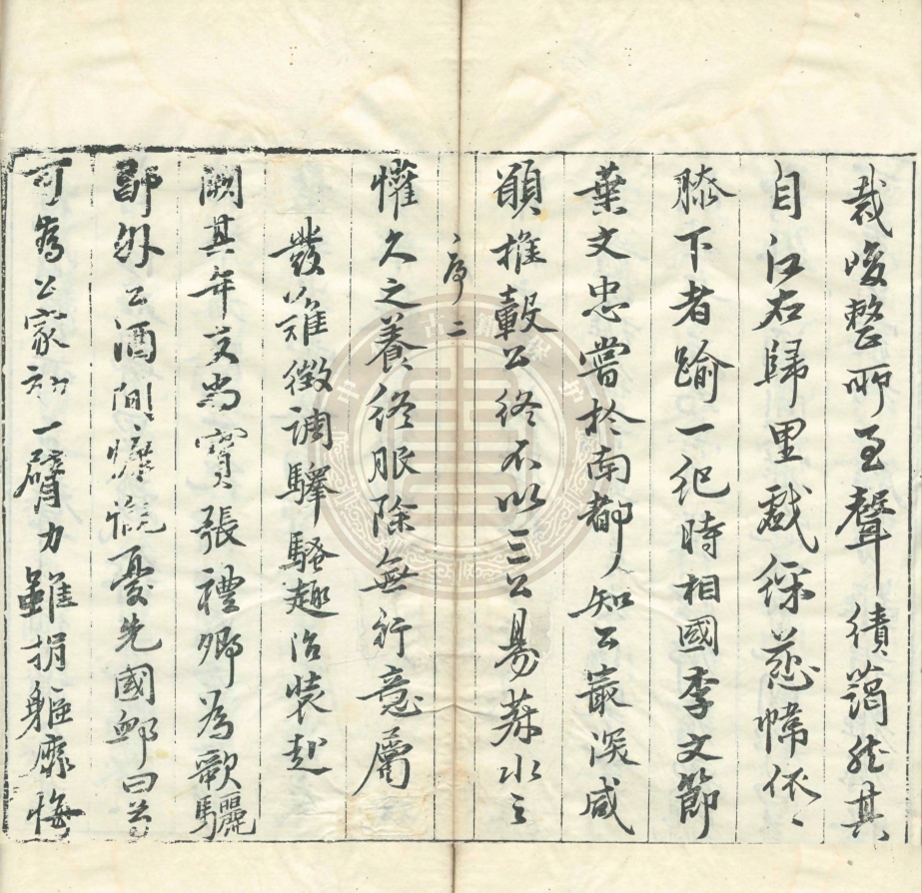 裁峻整所至聲績藹然其
自江右歸里戲綵慈幃依〻
膝下者踰一紀時相國李文節
葉文忠嘗於南都知公最深咸
願推轂公終不以三公易菽水之
序 二
懽久之養終服除無行意屬
發難徵調驛騷趣治裝赴
闕其年友尚寶張禮卿為歌驪
郎外公酒間慷慨憂先國卹曰苟
可為公家効一臂力雖捐軀靡悔